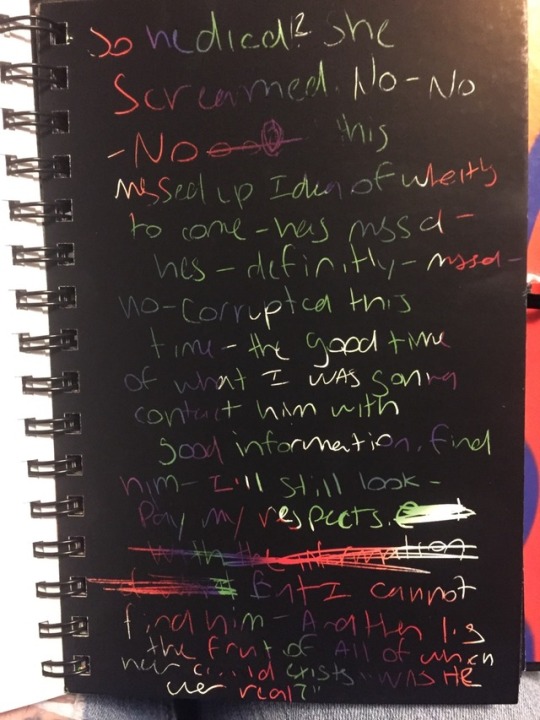 So he died!? She
Screamed. No-No
-No this
messed up Idea of whats
to come - has messd -
hes - definitly - messd -
no - Corrupted this
time - the good time
of what I was gonna
contact him with
good information. find
him - I'll still look -
Pay my respects.
But I cannot
find him - And then
the fruit of All of which
never exists "was He
ever real?"